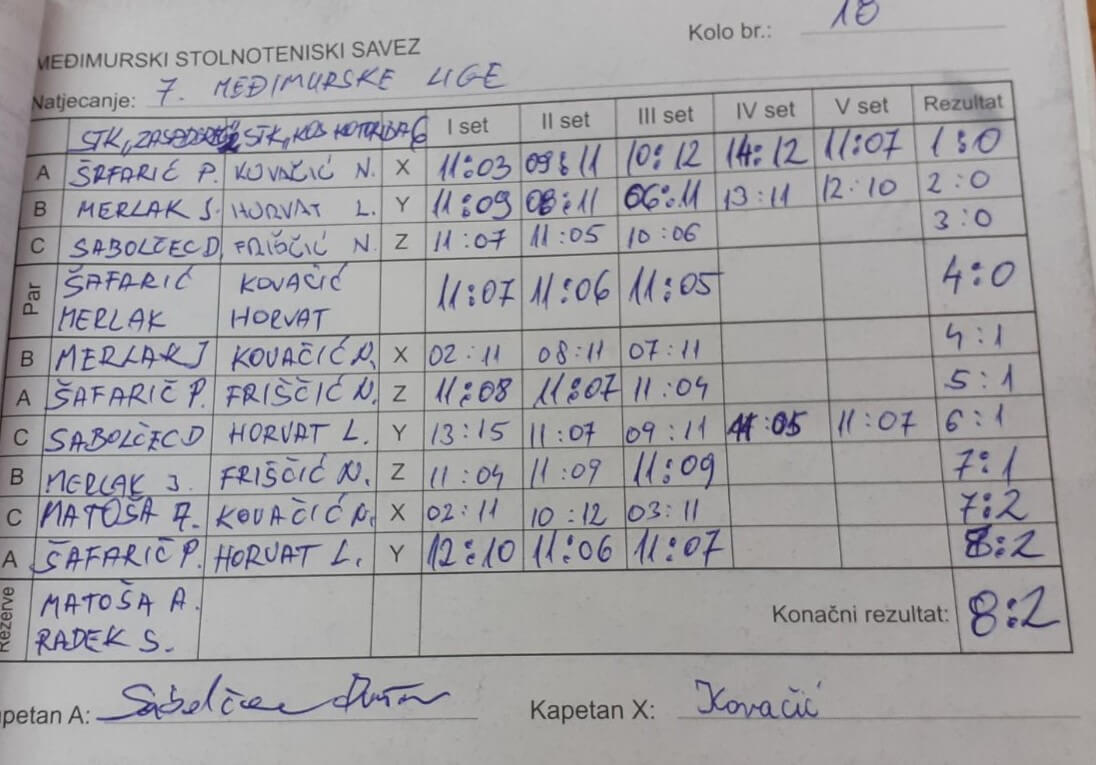 Kolo br.: 10
MEĐIMURSKI STOLNOTENISKI SAVEZ
Natjecanje: 7. MEĐIMURSKE LIGE
STK, STK, KOTORIBA I set II set III set IV set V set Rezultat
A ŠRFARIĆ P. KOVAČIĆ N. X 11:03 09:11 10:12 14:12 11:07 1:0
B MERLAK J. HORVAT L. Y 11:09 08:11 06:11 13:11 12:10 2:0
C SABOLČEC D. FRIŠČIĆ N. Z 11:07 11:05 10:06 3:0
Par ŠAFARIĆ KOVAČIĆ 11:07 11:06 11:05 4:0
MERLAK HORVAT
B MERLAK J KOVAČIĆ N. X 02:11 08:11 07:11 4:1
A ŠAFARIČ P. FRIŠČIĆ N. Z 11:08 11:07 11:04 5:1
C SABOLČEC D HORVAT L. Y 13:15 11:07 09:11 11:05 11:07 6:1
B MERLAK J. FRIŠČIĆ N. Z 11:04 11:09 11:09 7:1
C MATOŠA A. KOVAČIĆ N. X 02:11 10:12 03:11 7:2
A ŠAFARIČ P. HORVAT L. Y 12:10 11:06 11:07 8:2
Rezerve MATOŠA A.
RADEK S.
Konačni rezultat: 8:2
apetan A: Kapetan X: Kovačić